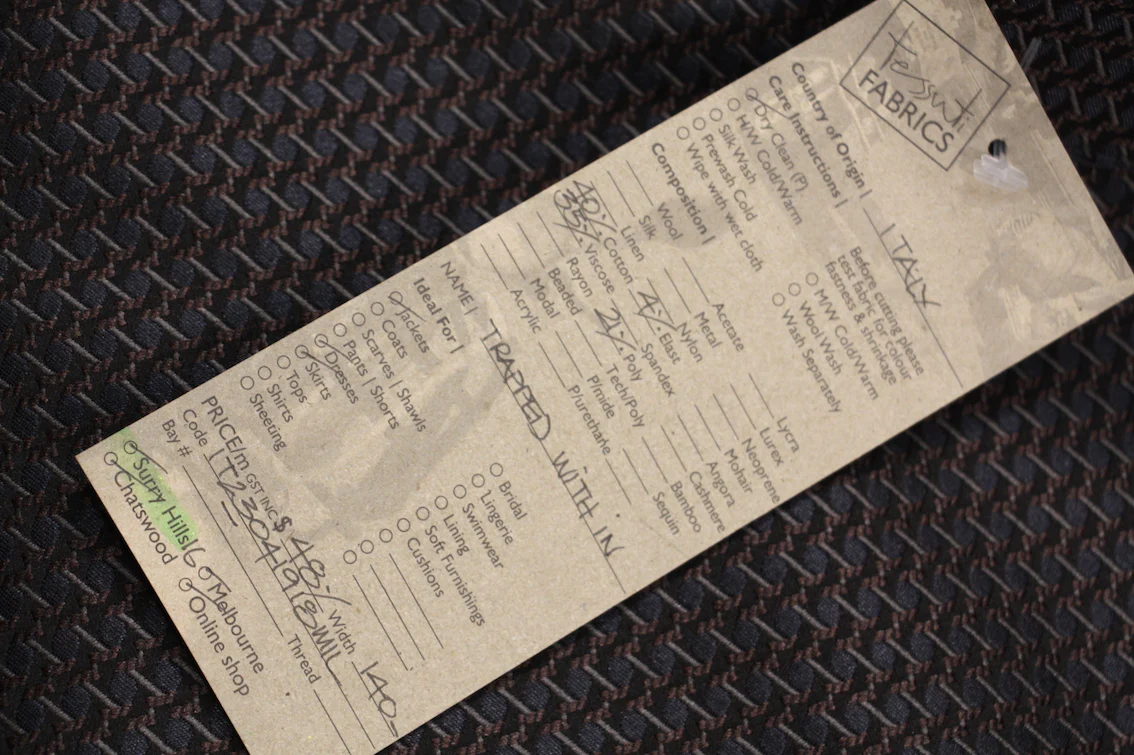 tessuti
FABRICS
Country of Origin | ITALY
Care Instructions |
Dry Clean (P)
H/W Cold/Warm
Silk Wash
Prewash Cold
Wipe with wet cloth
Before cutting please
test fabric for colour
fastness & shrinkage
M/W Cold/Warm
Wool Wash
Wash Separately
Composition |
Wool
Silk
Linen
40% Cotton
Viscose
Rayon
Beaded
Modal
Acrylic
Acetate
Metal
Nylon
4% Elast
Spandex
2% Poly
Tech/Poly
P/mide
P/urethane
Lycra
Lurex
Neoprene
Mohair
Angora
Cashmere
Bamboo
Sequin
NAME | TRAPPED WITH IN
Ideal For |
Jackets
Coats
Scarves | Shawls
Pants | Shorts
Dresses
Skirts
Tops
Shirts
Sheeting
Bridal
Lingerie
Swimwear
Lining
Soft Furnishings
Cushions
PRICE/m GST INC $ 48.- Width 140-
Code IT23041918MIL
Bay # Thread
Surry Hills 16 Melbourne
Chatswood Online shop